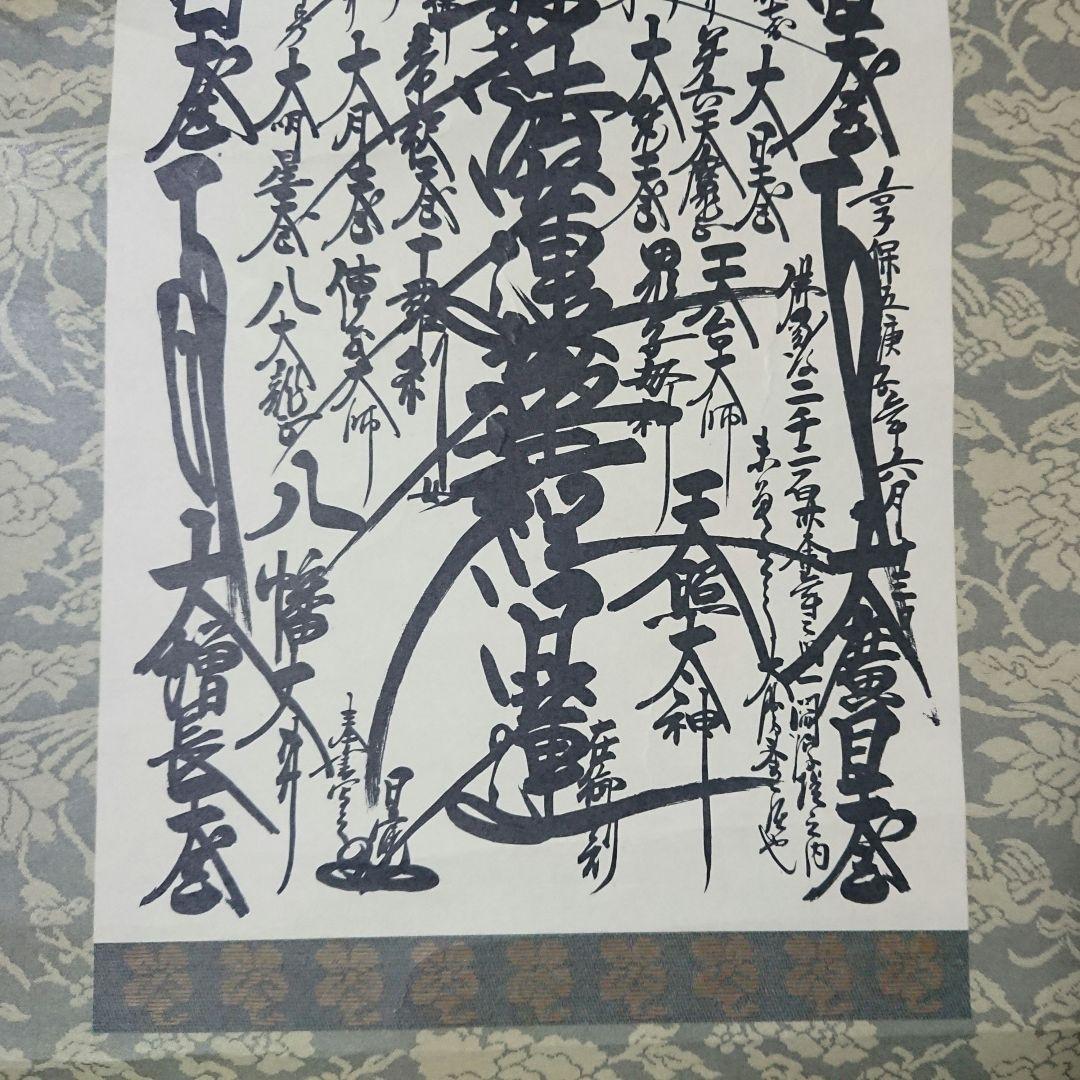 享保五庚子年六月十三日
大廣目天王
佛滅後二千二百三十余年之間一閻浮提之内
未曾有之大漫荼羅也
大日天王
第六天魔王
天台大師
天照太神
大梵天王
鬼子母神
在御判
法蓮華経
日蓮
十羅刹女
大月天王
傳教大師
大明星天王
八大龍王
八幡大菩薩
奉書写之
日寛
大増長天王